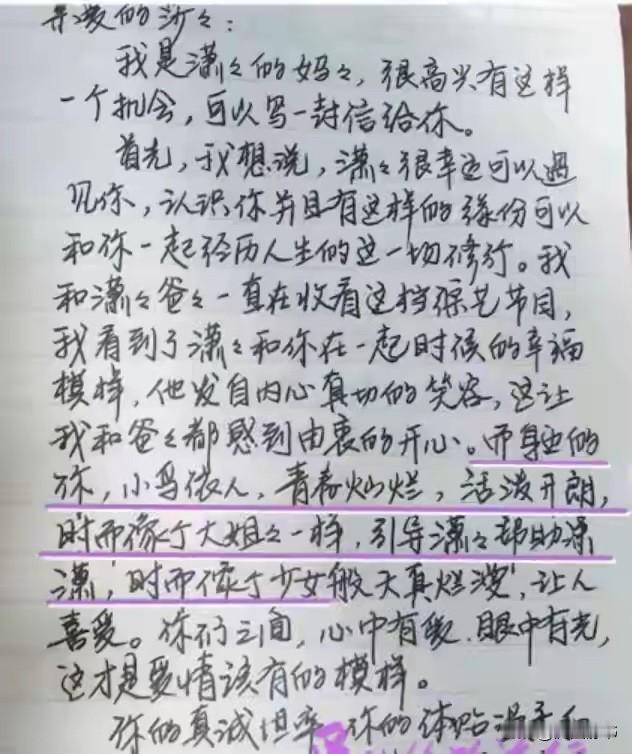 亲爱的沙々：
我是潇々的妈々，很高兴有这样
一个机会，可以写一封信给你。
首先，我想说，潇々很幸运可以遇
见你，认识你并且有这样的缘份可以
和你一起经历人生的这一场修行。我
和潇々爸々一直在收看这档综艺节目，
我看到了潇々和你在一起时候的幸福
模样，他发自内心真切的笑容，这让
我和爸々都感到由衷的开心。而身边的
你，小鸟依人，青春灿烂，活泼开朗，
时而像个大姐々一样，引导潇々帮助潇
潇，时而像个少女般天真烂漫，让人
喜爱。你们之间，心中有爱，眼中有光，
这才是爱情该有的模样。
你的真诚坦率 你的体贴